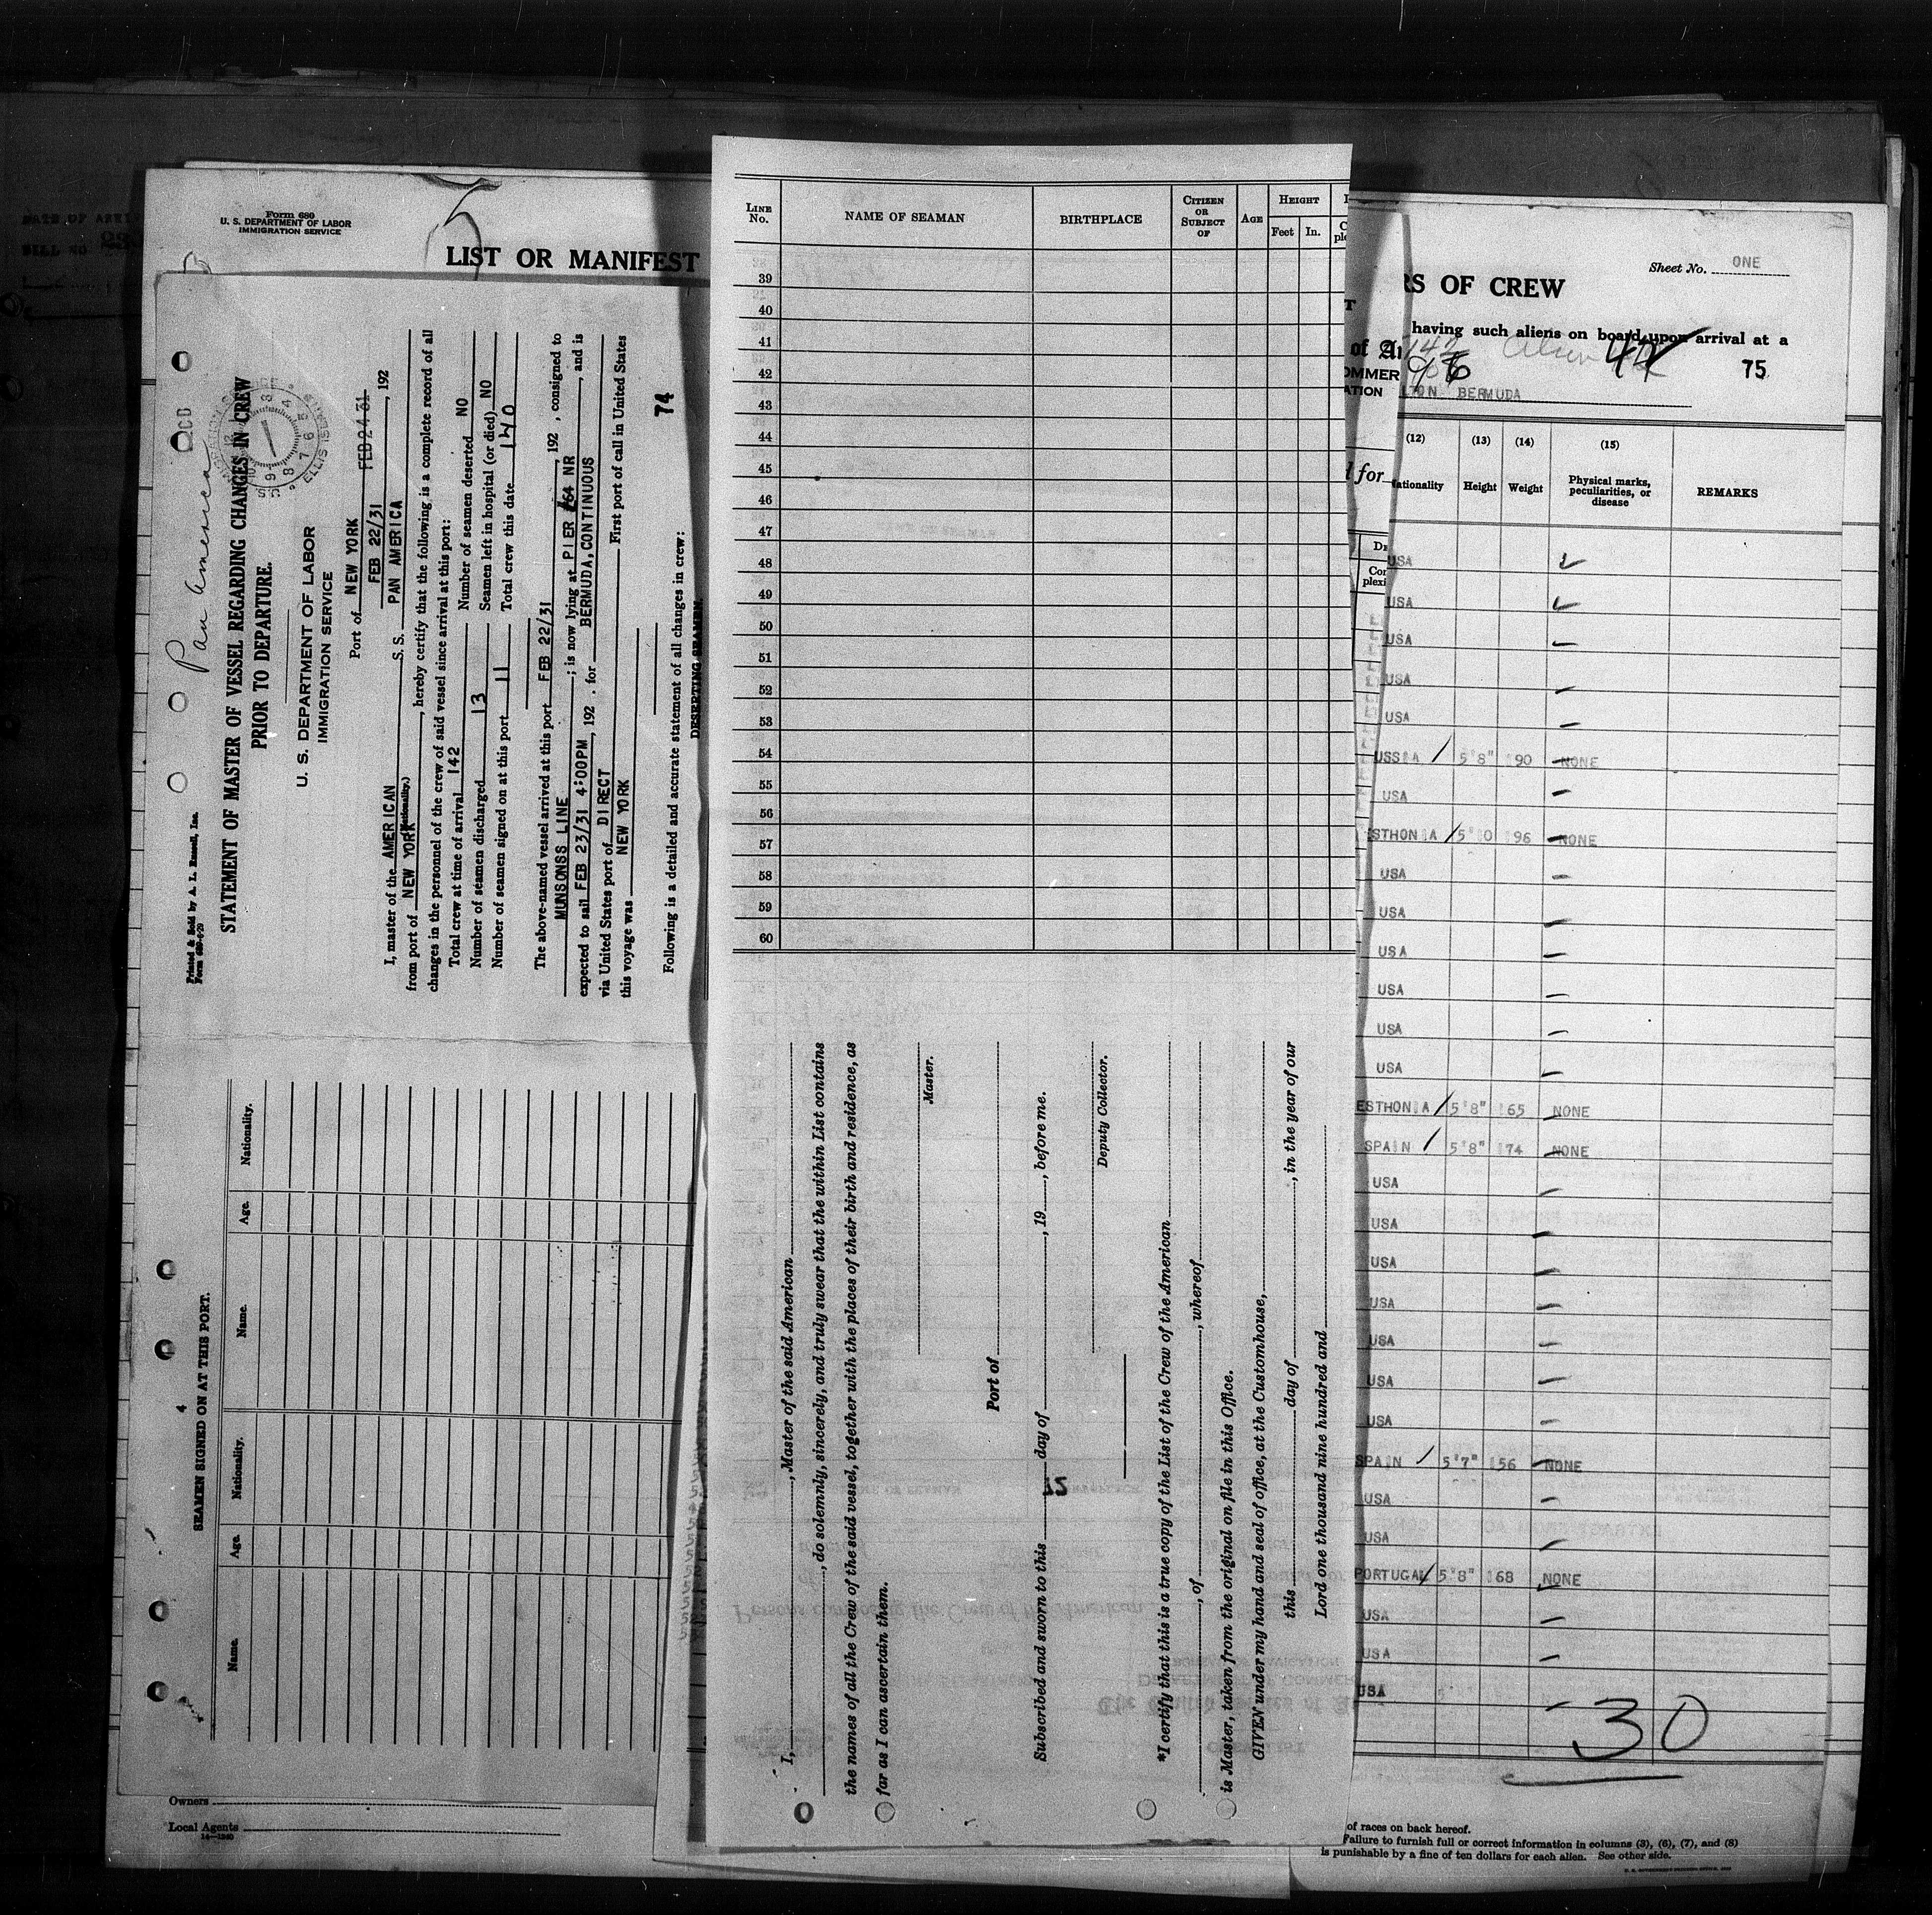 Form 680
U. S. DEPARTMENT OF LABOR
IMMIGRATION SERVICE
LIST OR MANIFEST
Pan America
Printed & Sold by A. L. Russell, Inc.
Form 689-6-29
STATEMENT OF MASTER OF VESSEL REGARDING CHANGES IN CREW
PRIOR TO DEPARTURE.
U. S. DEPARTMENT OF LABOR
IMMIGRATION SERVICE
Port of NEW YORK
FEB 24 31
FEB 22/31, 192
I, master of the AMERICAN S. S. PAN AMERICA
(Nationality.)
from port of NEW YORK, hereby certify that the following is a complete record of all
changes in the personnel of the crew of said vessel since arrival at this port:
Total crew at time of arrival 142 Number of seamen deserted NO
Number of seamen discharged 13 Seamen left in hospital (or died) NO
Number of seamen signed on at this port 11 Total crew this date 140
The above-named vessel arrived at this port FEB 22/31, 192 , consigned to
MUNSONSS LINE; is now lying at PIER 64 NR, and is
expected to sail FEB 23/31 4:00PM, 192 . for BERMUDA, CONTINUOUS
via United States port of DIRECT First port of call in United States
this voyage was NEW YORK
74
Following is a detailed and accurate statement of all changes in crew:
DESERTING SEAMEN.
4
SEAMEN SIGNED ON AT THIS PORT.
Name. Age. Nationality. Name. Age. Nationality.
Owners
Local Agents
14—1240
LINE No. NAME OF SEAMAN BIRTHPLACE CITIZEN OR SUBJECT OF AGE HEIGHT
Feet In.
39
40
41
42
43
44
45
46
47
48
49
50
51
52
53
54
55
56
57
58
59
60
I, , Master of the said American
, do solemnly, sincerely, and truly swear that the within List contains
the names of all the Crew of the said vessel, together with the places of their birth and residence, as
far as I can ascertain them.
Master.
Port of
Subscribed and sworn to this day of , 19 , before me.
72
Deputy Collector.
*I certify that this is a true copy of the List of the Crew of the American
, of , whereof
is Master, taken from the original on file in this Office.
GIVEN under my hand and seal of office, at the Customhouse,
this day of , in the year of our
Lord one thousand nine hundred and
Sheet No. ONE
RS OF CREW
having such aliens on board upon arrival at a
75
LTON BERMUDA
(12) (13) (14) (15)
ationality Height Weight Physical marks, peculiarities, or disease REMARKS
USA
USA
USA
USA
USA
USSIA 5'8" 190 NONE
USA
ESTHONIA 5'10 196 NONE
USA
USA
USA
USA
USA
USA
ESTHONIA 5'8" 165 NONE
SPAIN 5'8" 174 NONE
USA
USA
USA
USA
USA
USA
USA
SPAIN 5'7" 156 NONE
USA
USA
PORTUGAL 5'8" 168 NONE
USA
USA
USA
30
of races on back hereof.
Failure to furnish full or correct information in columns (3), (6), (7), and (8)
is punishable by a fine of ten dollars for each alien. See other side.